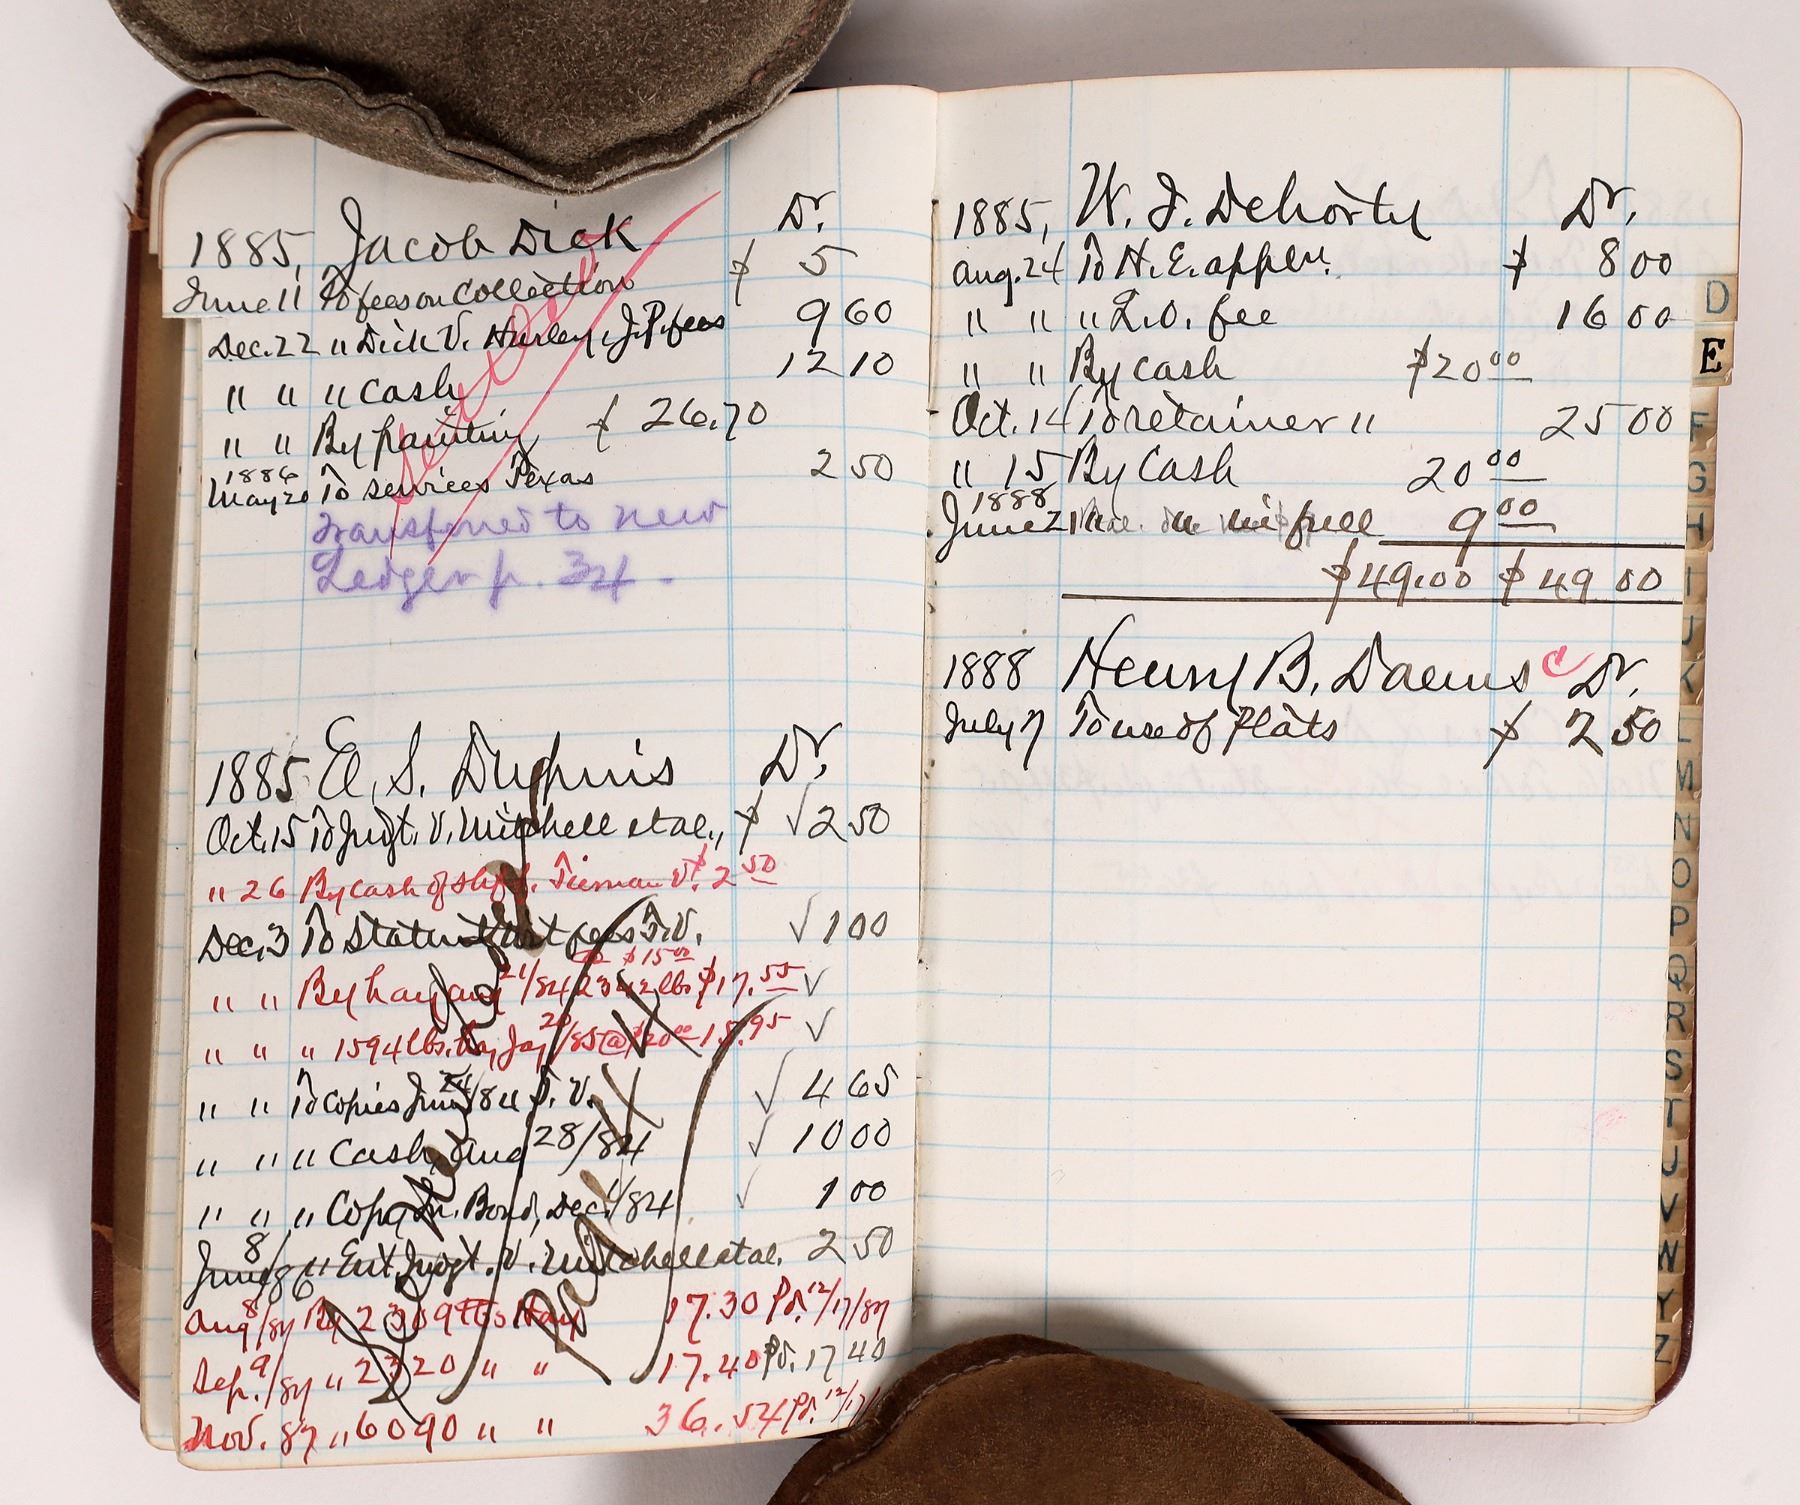 1885, Jacob Dick Dr.
June 11 To fees on Collection $ 5
Dec. 22 " Dick V. Hurley, J.P. fees 9 60
" " " Cash 12 10
" " By painting $ 26.70
1886
May 20 To services Texas 2 50
Transferred to new
Ledger p. 34.
1885 E. S. Dupuis Dr.
Oct. 15 To Judgt. V. Mitchell et al., $ √ 2 50
" 26 By cash of $ 2 50
Dec. 3 To √ 1 00
@ $15 00
" " By hay Aug 21/84 2342 lbs $17.55 √
" " " 1594 lbs. hay Jay 20/85 @ $20 00 15.95 √
" " To Copies June 24/84 J. V. √ 4 65
" " " Cash, Aug 28/84 √ 10 00
" " " Copy Bond, Dec. 1/84 √ 1 00
June 8/86 " Ent. Judgt. V. Mitchell et al. 2 50
Aug 8/87 By 2309 lbs Hay 17.30 Pd. 12/17/87
Sep. 9/87 " 2320 " " 17.40 Pd. 17 40
Nov. 87 " 6090 " " 36.54 Pd. 12/17/
1885, W. J. Dehorty Dr.
Aug. 24 To H. E. appln. $ 8 00
" " " L.O. fee 16 00
" " By cash $20 00
Oct. 14 To retainer " 25 00
" 15 By Cash 20 00
1888
June 21 " " in full 9 00
$49.00 $49 00
1888 Henry B. Daems C Dr.
July 7 To use of Plats $ 2 50
D
E
F
G
H
I
J
K
L
M
N
O
P
Q
R
S
T
U
V
W
Y
Z